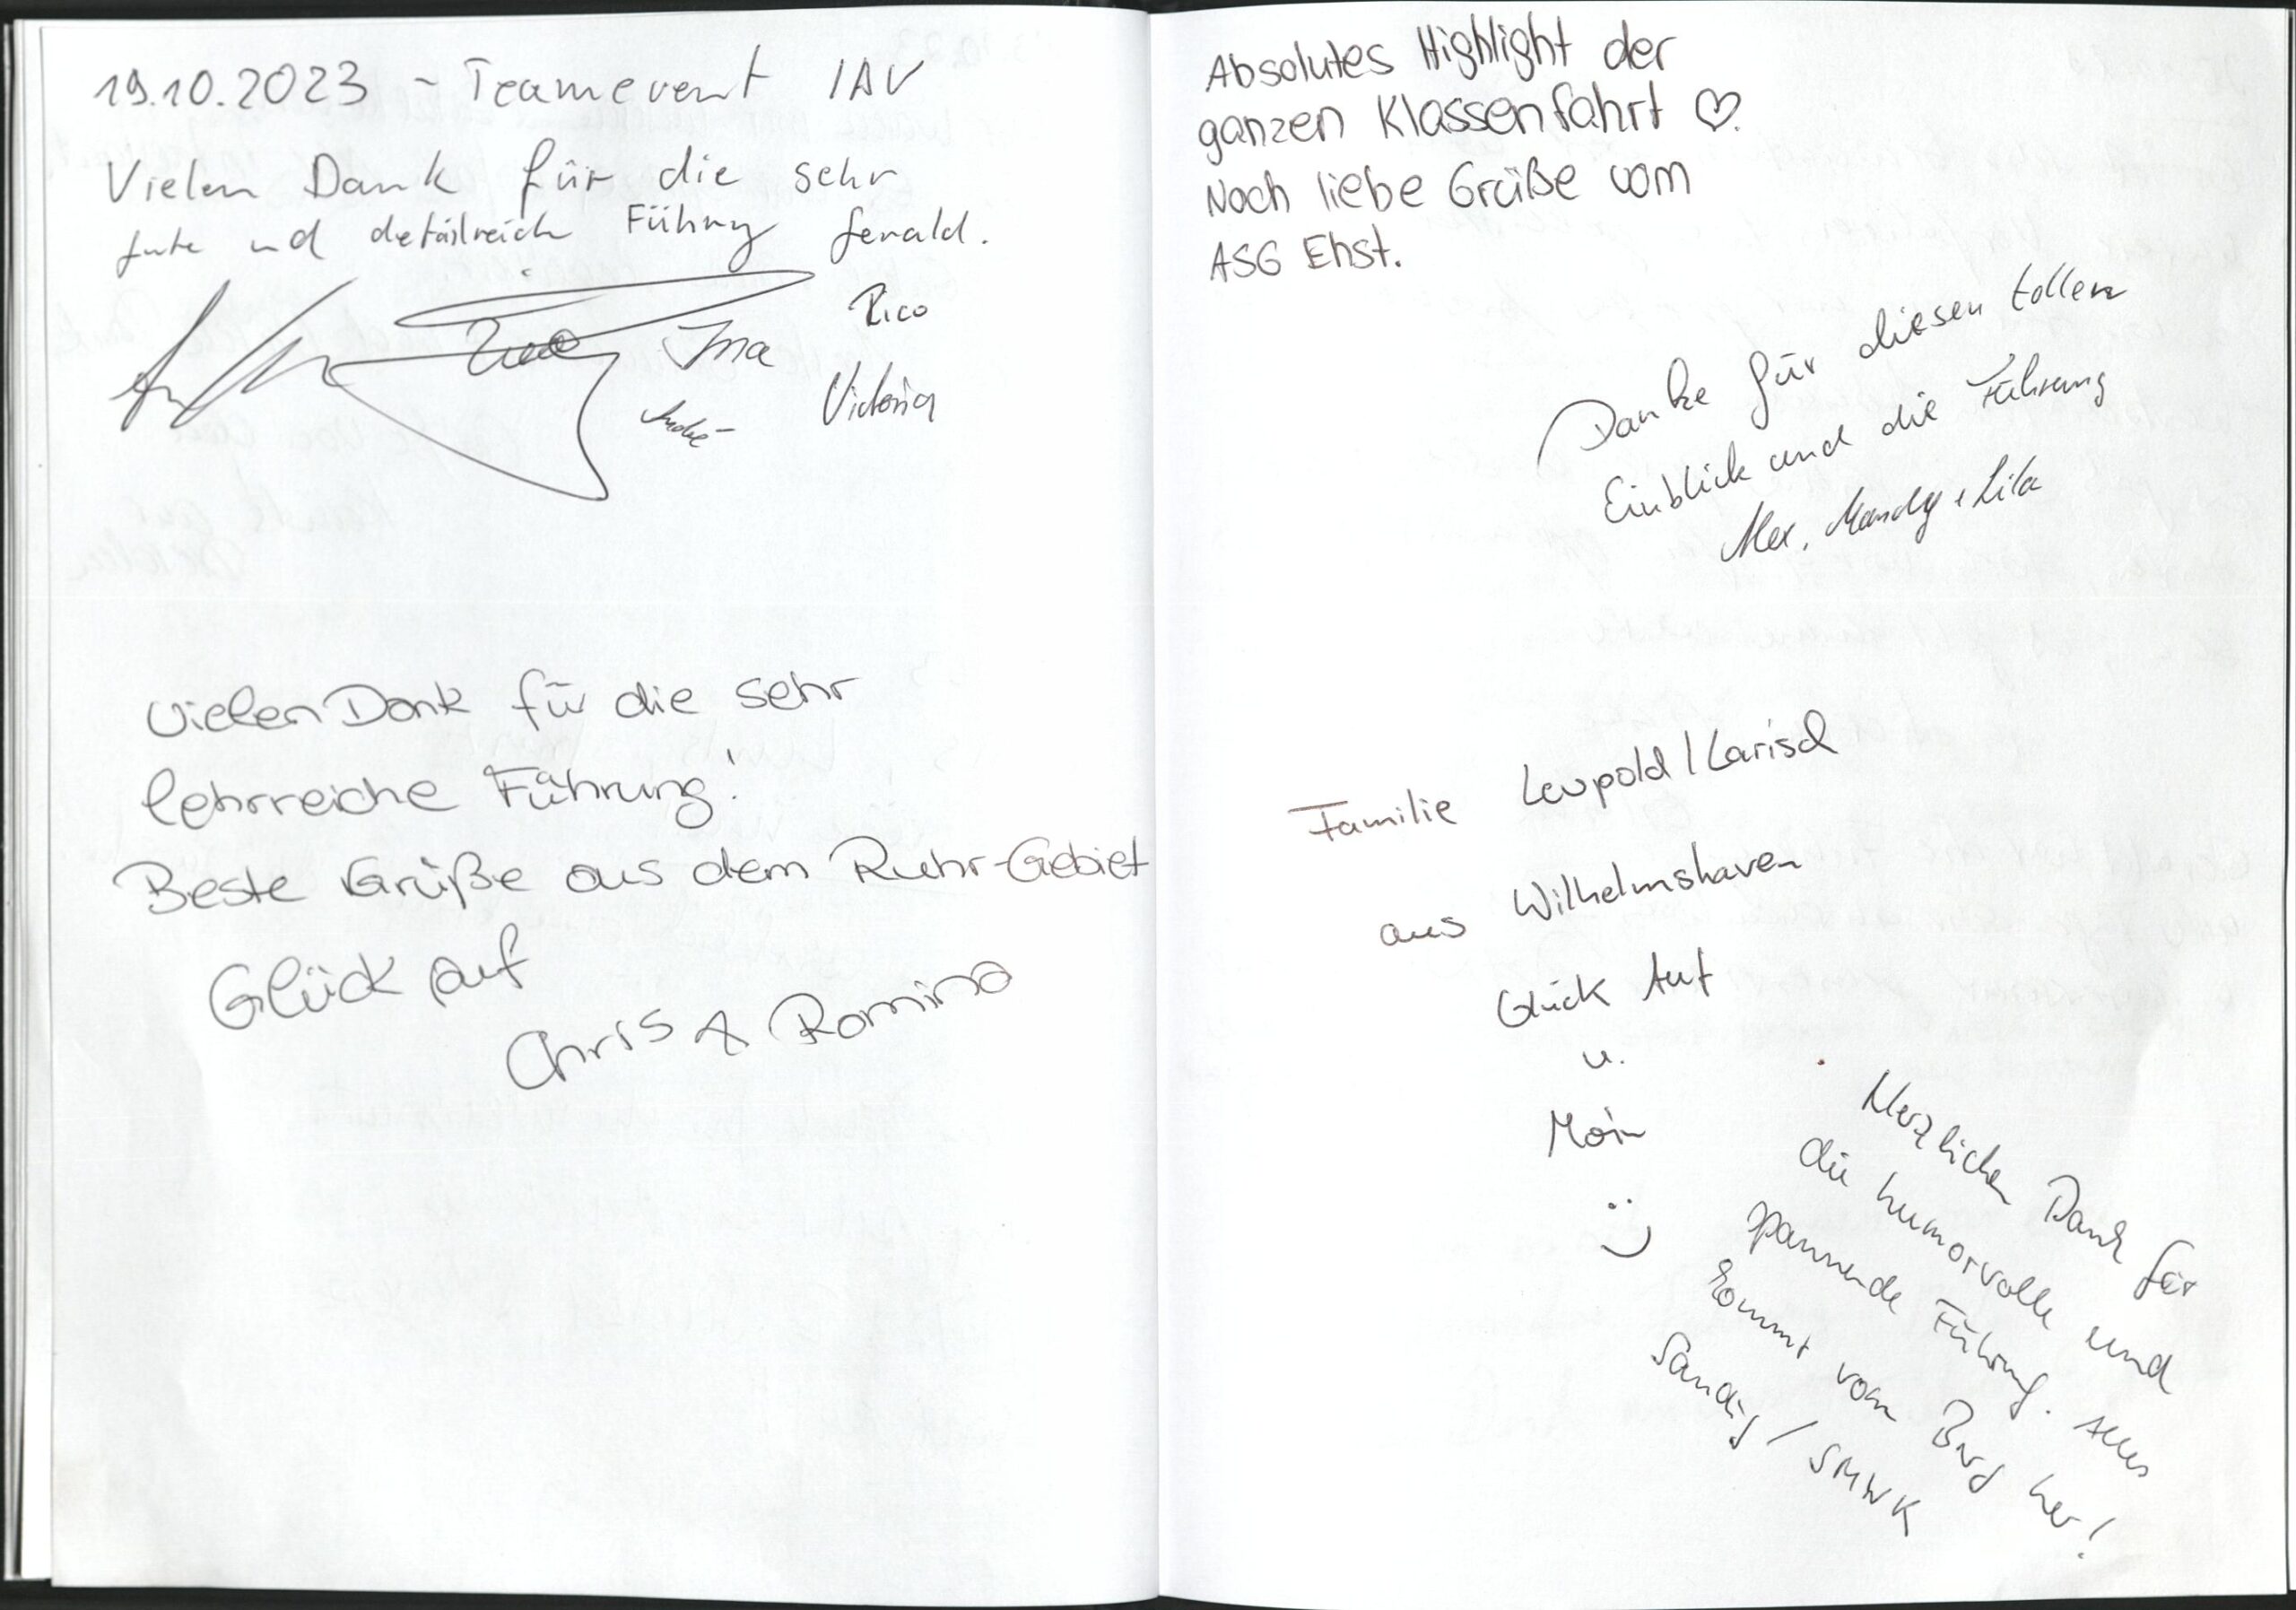 19.10.2023 - Teamevent IAV
Vielen Dank für die sehr
gute und detailreich Führung Gerald.
Rico
Ina
Victoria
André
Vielen Dank für die sehr
lehrreiche Führung!
Beste Grüße aus dem Ruhr-Gebiet
Glück auf
Chris & Romina
Absolutes Highlight der
ganzen Klassenfahrt ♡.
Noch liebe Grüße vom
ASG Ehst.
Danke für diesen tollen
Einblick und die Führung
Alex, Mandy + Lila
Familie Leupold / Larisch
aus Wilhelmshaven
Glück Auf
u.
Moin
:)
Herzlichen Dank für
die humorvolle und
spannende Führung. Alles
kommt vom Berg her!
Sandy / SMWK